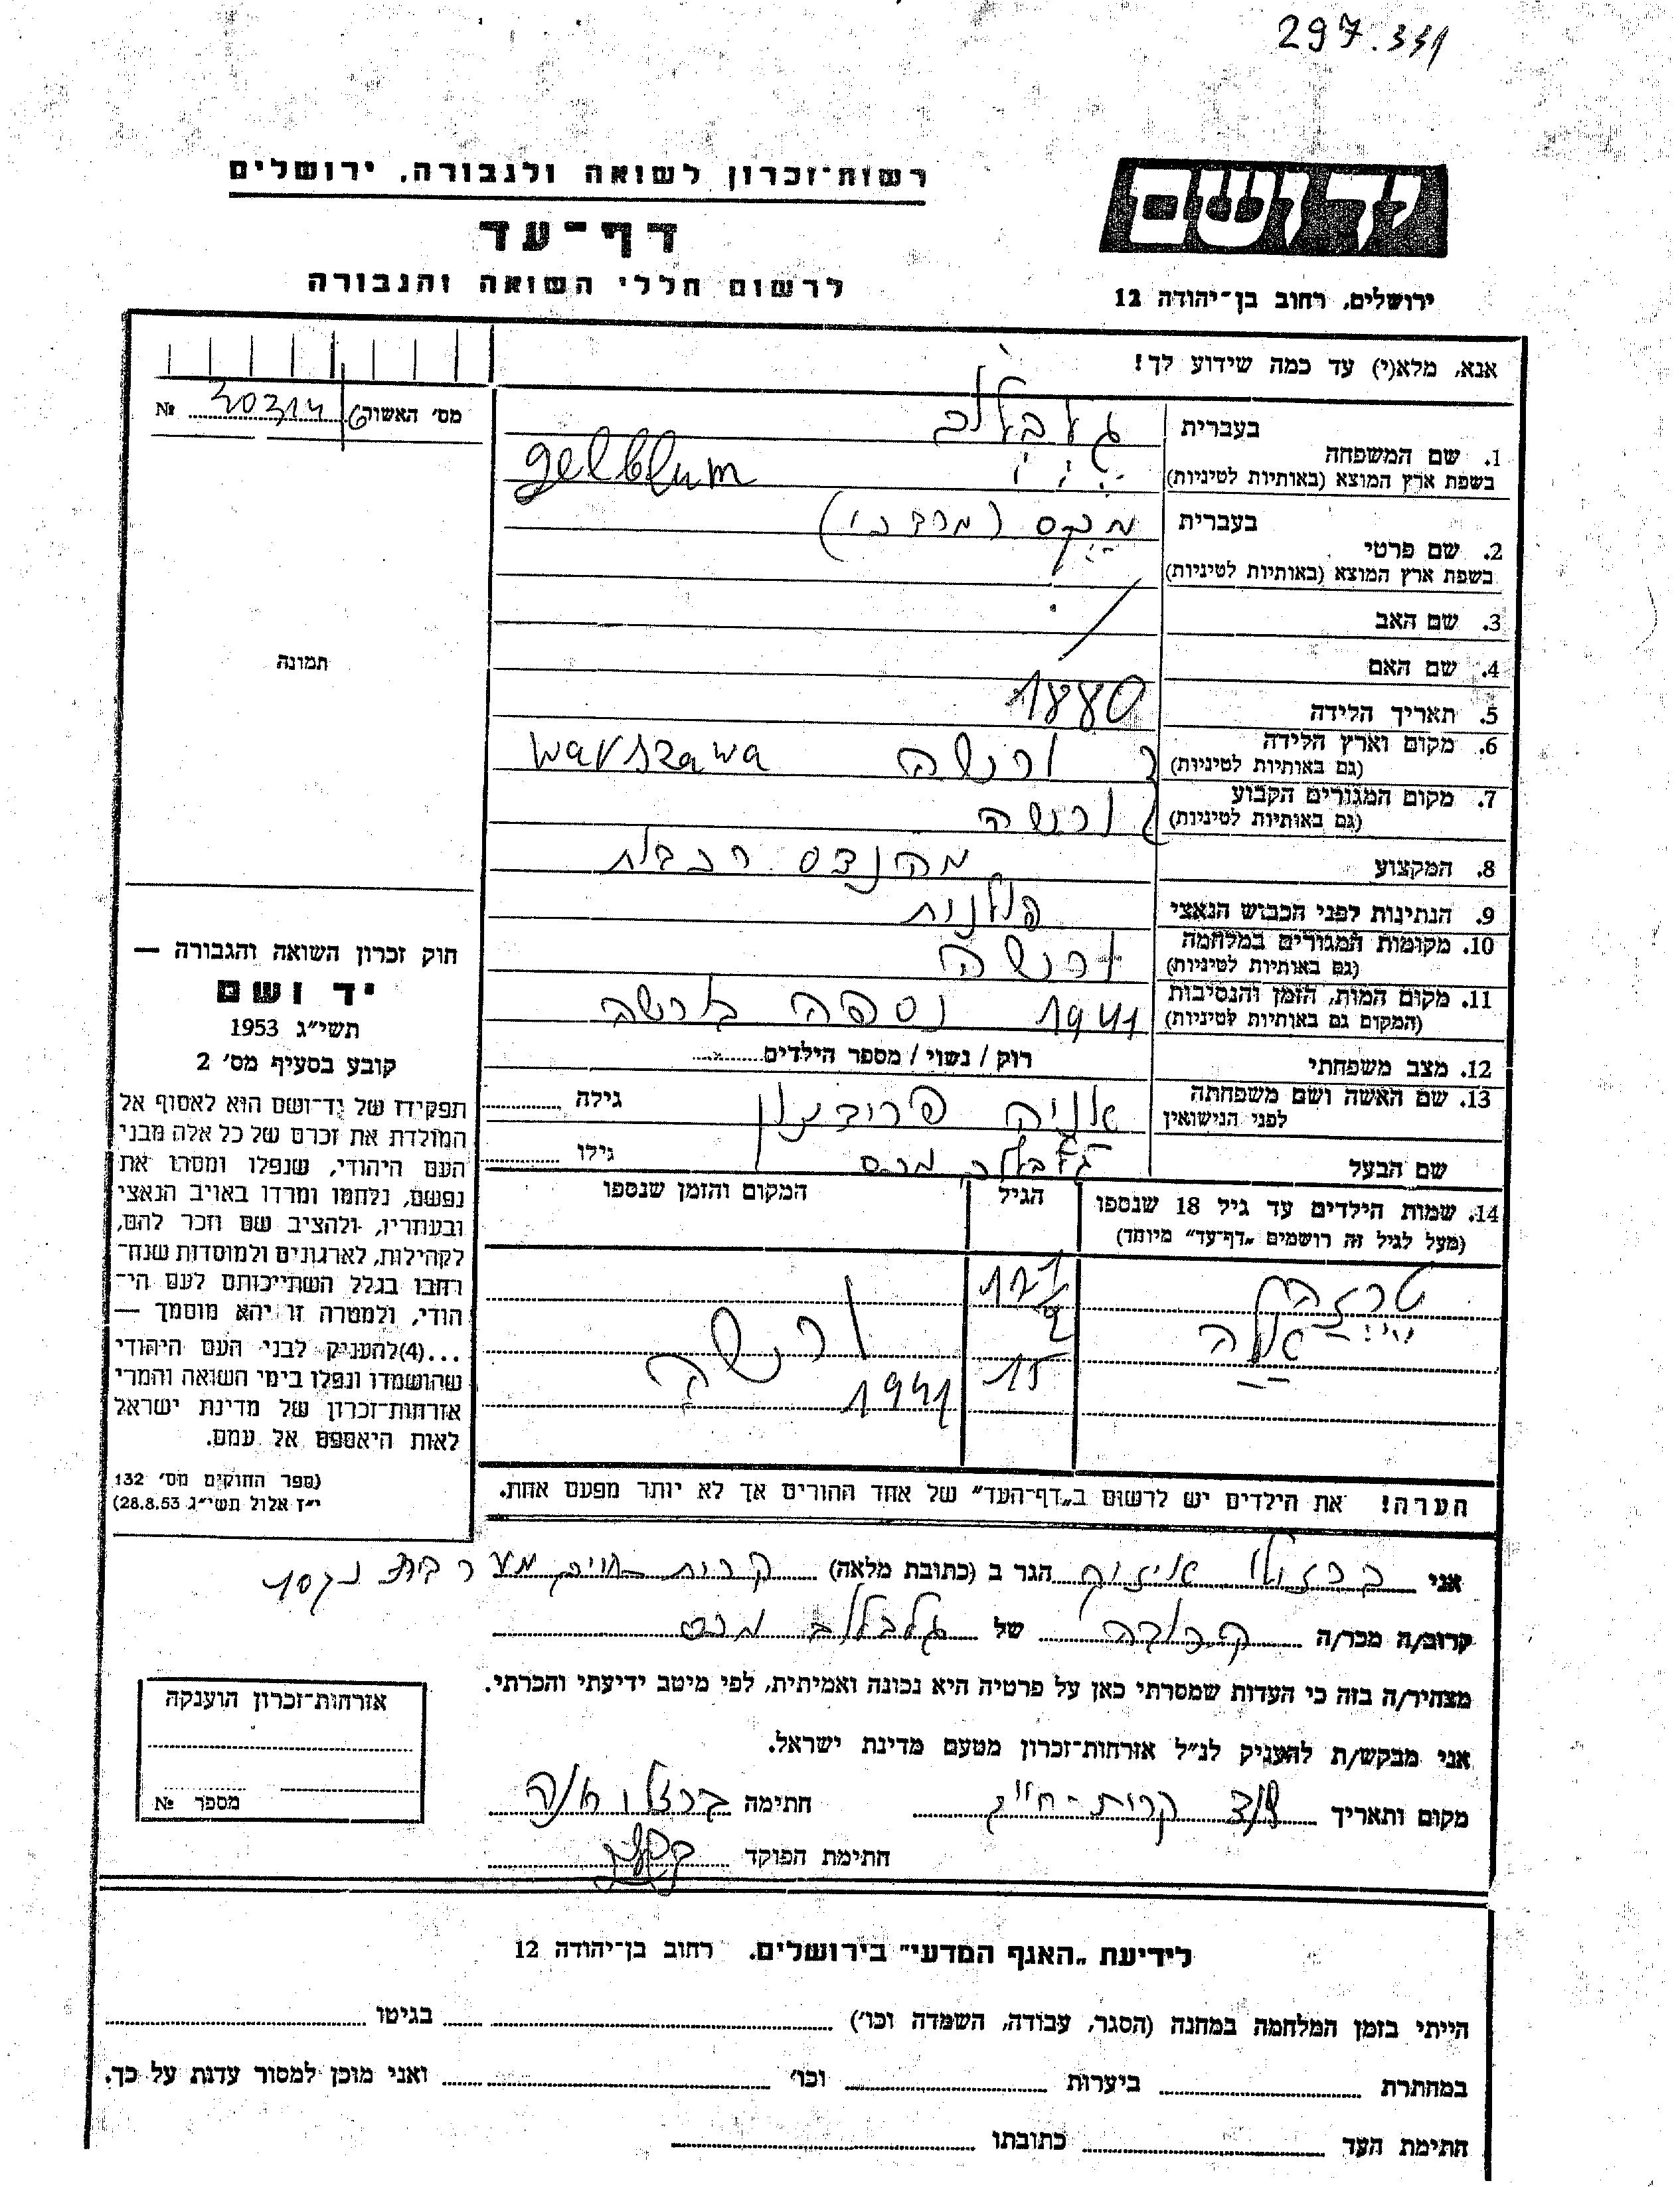 297.331
רשות־זכרון לשואה ולגבורה, ירושלים
יד ושם
דף־עד
לרשום חללי השואה והגבורה
ירושלים, רחוב בן־יהודה 12
אנא, מלא(י) עד כמה שידוע לך!
מס׳ האשוה 6 30314 №
תמונה
1. שם המשפחה בעברית
בשפת ארץ המוצא (באותיות לטיניות) gelblum
2. שם פרטי בעברית מכס (מרדכי)
בשפת ארץ המוצא (באותיות לטיניות)
3. שם האב
4. שם האם
5. תאריך הלידה 1880
6. מקום וארץ הלידה ורשה warszawa
(גם באותיות לטיניות)
7. מקום המגורים הקבוע ורשה
(גם באותיות לטיניות)
8. המקצוע מהנדס רכבת
9. הנתינות לפני הכבוש הנאצי פולנית
10. מקומות המגורים במלחמה ורשה
(גם באותיות לטיניות)
11. מקום המות, הזמן והנסיבות 1941 נספה בורשה
(המקום גם באותיות לטיניות)
12. מצב משפחתי רוק / נשוי / מספר הילדים
13. שם האשה ושם משפחתה גילה
לפני הנישואין
שם הבעל גילו
14. שמות הילדים עד גיל 18 שנספו הגיל המקום והזמן שנספו
(מעל לגיל זה רושמים „דף־עד” מיוחד)
12 1/2
15 ורשה
1941
הערה! את הילדים יש לרשום ב„דף־העד” של אחד ההורים אך לא יותר מפעם אחת.
חוק זכרון השואה והגבורה —
יד ושם
תשי״ג 1953
קובע בסעיף מס׳ 2
תפקידו של יד־ושם הוא לאסוף אל
המולדת את זכרם של כל אלה מבני
העם היהודי, שנפלו ומסרו את
נפשם, נלחמו ומרדו באויב הנאצי
ובעוזריו, ולהציב שם וזכר להם,
לקהילות, לארגונים ולמוסדות שנח־
רבו בגלל השתייכותם לעם הי־
הודי, ולמטרה זו יהא מוסמך —
...(4) להעניק לבני העם היהודי
שהושמדו ונפלו בימי השואה והמרי
אזרחות־זכרון של מדינת ישראל
לאות היאספם אל עמם.
(ספר החוקים מס׳ 132
י״ז אלול תשי״ג 28.8.53)
אני הגר ב (כתובת מלאה) קרית
קרוב/ה מכר/ה קרובה של גלבלום מכס
מצהיר/ה בזה כי העדות שמסרתי כאן על פרטיה היא נכונה ואמיתית, לפי מיטב ידיעתי והכרתי.
אני מבקש/ת להעניק לנ״ל אזרחות־זכרון מטעם מדינת ישראל.
מקום ותאריך קרית־חיים חתימה
חתימת הפוקד
אזרחות־זכרון הוענקה
מספר №
לידיעת „האגף המדעי” בירושלים. רחוב בן־יהודה 12
הייתי בזמן המלחמה במחנה (הסגר, עבודה, השמדה וכו׳) בגיטו
במחתרת ביערות וכו׳ ואני מוכן למסור עדות על כך.
חתימת העד כתובתו